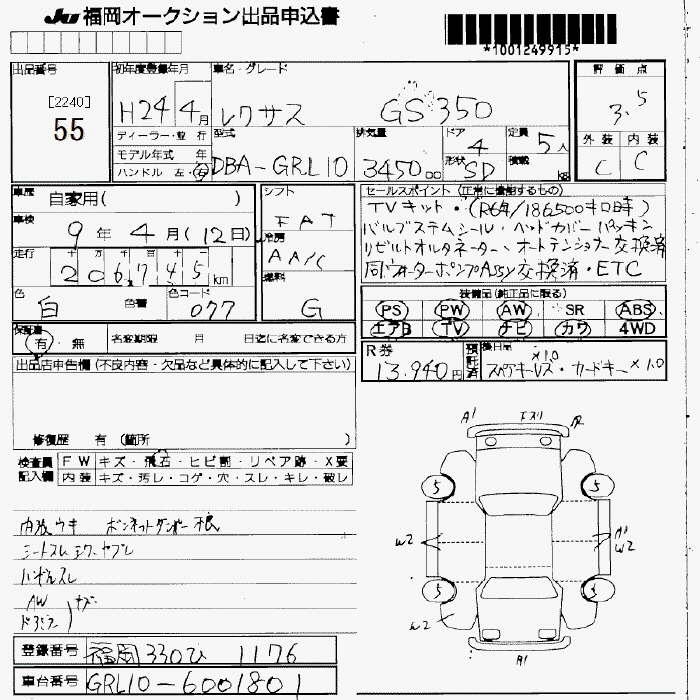 JU 福岡オークション出品申込書
*1001249915*
出品番号
[2240]
55
初年度登録年月
H24 4月
車名・グレード
レクサス GS350
評価点
3.5
外装 内装
C C
ディーラー・並行
モデル年式 年
ハンドル 左・右
型式
DBA-GRL10
排気量
3450 cc
ドア
4
形状
SD
定員
5人
積載
kg
車歴
自家用( )
車検
9年 4月 (12日)
走行
十 万 千 百 十
206745 km
色
白
色替
色コード
077
シフト
FAT
冷房
AA/C
燃料
G
セールスポイント (正常に機能するもの)
TVキット・(R6年/186500キロ時)
バルブステムシール・ヘッドカバーパッキン
リビルトオルタネーター、オートテンショナー交換済
同ウォーターポンプAssy交換済・ETC
装備品(純正品に限る)
PS PW AW SR ABS
エアB TV ナビ カワ 4WD
保証書
有・無
名変期限 月 日迄に名変できる方
R券
13.940円
預託済
後日品
スペアキーレス×1.0・カードキー×1.0
出品店申告欄 (不良内容・欠品など具体的に記入して下さい)
修復歴 有 (箇所 )
検査員記入欄
FW キズ・飛石・ヒビ割・リペア跡・X要
内装 キズ・汚レ・コゲ・穴・スレ・キレ・破レ
内張ウキ ボンネットダンパー
シート スレ シワ ヤブレ
ハンドルスレ
AW
ドアミラー キズ
A1 R
5 5
W2 A1
W2
5 5
W2
A1
登録番号 福岡 330 ひ 1176
車台番号 GRL10-6001801